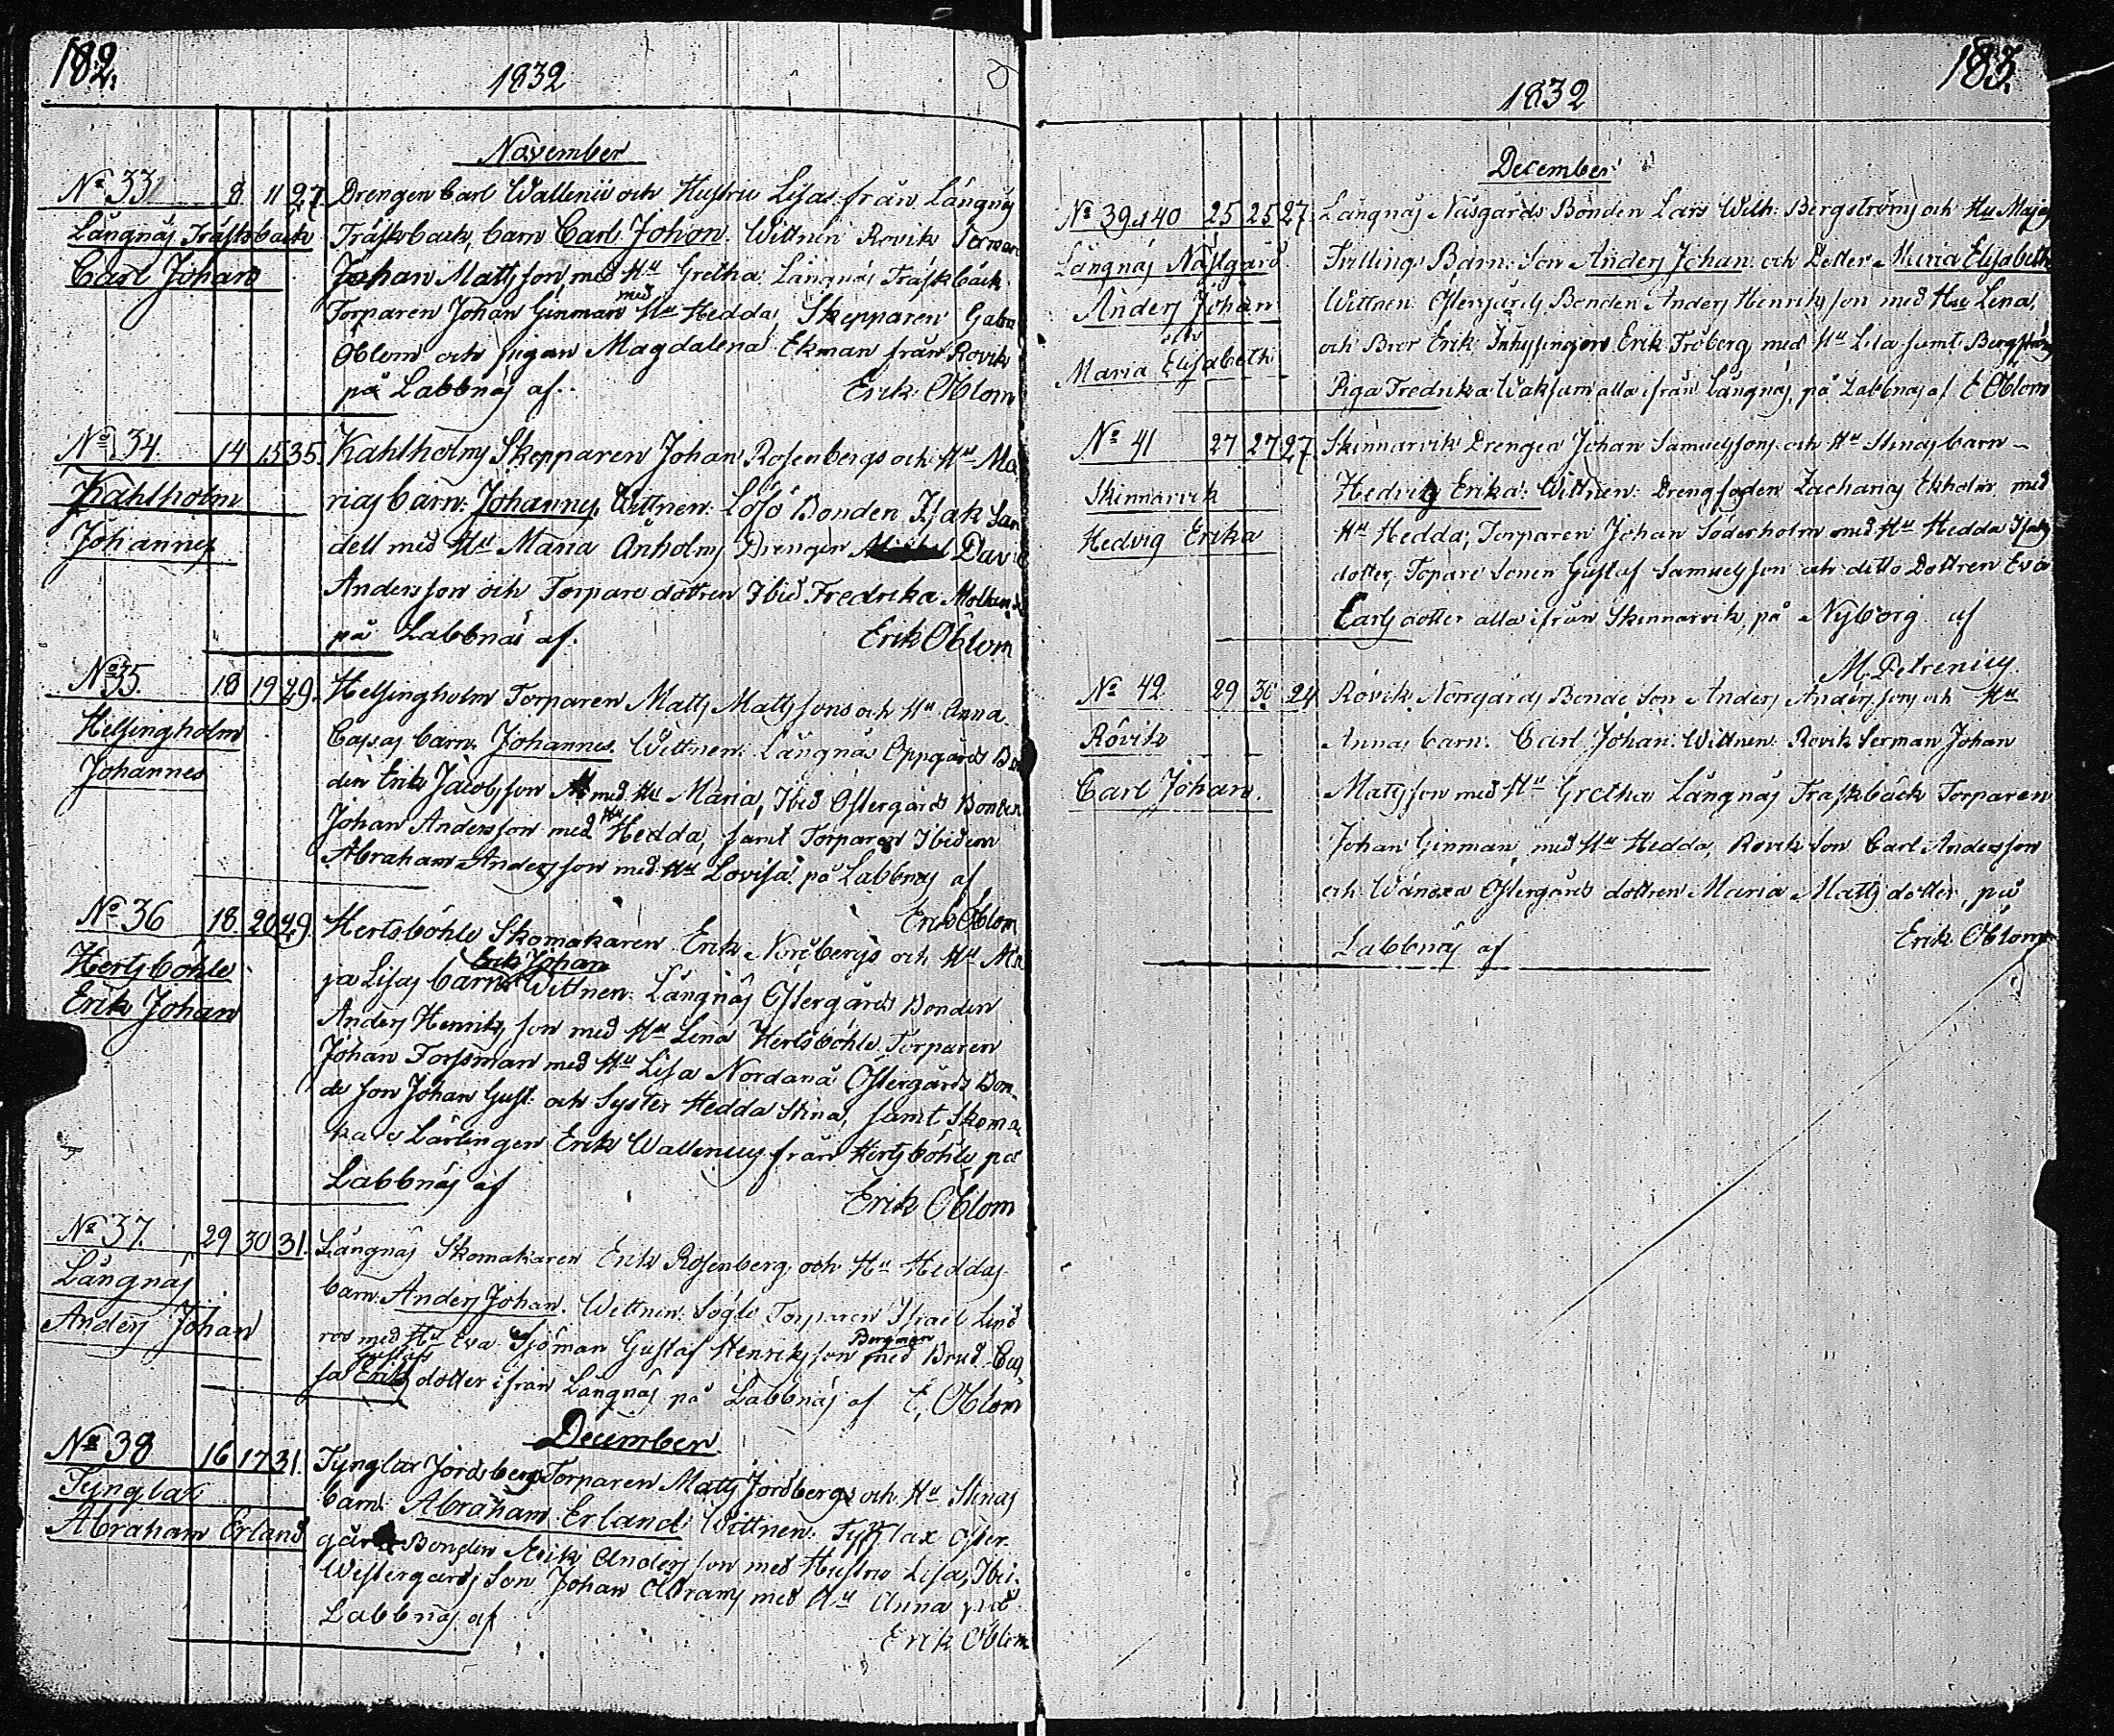 182.
1832
November
No 33 8 11 27. Drengen Carl Wallenii och Hustru Lisas från Långnäs
Långnäs Träskback Träskback, barn Carl Johan. Wittnen Rövik Serman
Carl Johan Johan Mattsson med Hu Gretha Långnäs Träskback
Torparen Johan Ginman med Hu Hedda Skepparen Gabr
Öblom och pigan Magdalena Ekman från Rövik
på Labbnäs af. Erik Öblom
No 34. 14 15 35. Kahlholms Skepparen Johan Rosenbergs och Hu Ma
Kahlholm rias barn: Johannes, Wittnen: Lösö Bonden Isak San
Johannes dell med Hu Maria Önholms Drengen David
Andersson och Torpare dotren Ibid Fredrika
på Labbnäs af. Erik Öblom
No 35. 18 19 29. Helsingholm Torparen Matts Mattssons och Hu Anna
Helsingholm Cajsas barn: Johannes. Wittnen: Långnäs Oppgårds Bon
Johannes den Erik Jacobsson med Hu Maria, Ibid Östergårds Bonden
Johan Andersson med Hu Hedda, samt Torparen Ibidem
Abraham Andersson med Hu Lovisa på Labbnäs af
Erik Öblom
No 36 18. 20 29. Hertsböhle Skomakaren Erik Nordbergs och Hu Ma
Hertsböhle ja Lisas barn Erik Johan Wittnen: Långnäs Östergårds Bonden
Erik Johan Anders Henriksson med Hu Lena Hertsböhle Torparen
Johan Forssman med Hu Lisa Nordanå Östergårds Bon-
de son Johan Gust. och Syster Hedda Stina, samt Skoma
kare Lärlingen Erik Wallenius från Hertsböhle på
Labbnäs af Erik Öblom
No 37. 29 30 31. Långnäs Skomakaren Erik Rosenberg och Hu Heddas
Långnäs barn: Anders Johan. Wittnen: Sögle Torparen Israel Lind
Anders Johan ros med Hu Eva Sjöman Gustaf Henriksson Bergman med Brud Caj
sa Gustafs Eriks dotter ifrån Långnäs på Labbnäs af E, Öblom
December
No 38 16 17 31. Tynglax Jordsbergs Torparen Matts Jordbergs och Hu Stinas
Tynglax barn: Abraham Erland Wittnen: Tyfflax Öster
Abraham Erland gård Bonden Erik Andersson med Hustru Lisa, Ibi.
Westergårds Son Johan Abrams med Hu Anna på
Labbnäs af
Erik Öblom
183.
1832
December
No 39 et 40 25 25 27. Långnäs Näsgårds Bonden Lars Wilh: Bergströms och Hu Majas
Långnäs Näsgård Tvillings Barn: Son Anders Johan och Dotter Maria Elisabeth
Anders Johan Wittnen: Östergårds Bonden Anders Henriksson med Hu Lena,
och och Bror Erik Inhysingen Erik Fröberg med Hu Lisa samt Bergströms
Maria Elisabeth Piga Fredrika Waksam alla ifrån Långnäs, på Labbnäs af E Öblom
No 41 27 27 27. Skinnarvik Drengen Johan Samuelssons och Hu Stinas barn
Skinnarvik Hedvig Erika: Wittnen: Drengfogden Zacharias Ekholm med
Hedvig Erika Hu Hedda, Torparen Johan Söderholm med Hu Hedda Isaks
dotter, Topare Sonen Gustaf Samuelsson och ditto Dottren Eva
Carls dotter alla ifrån Skinnarvik, på Nyborg af
M. Petrenius.
No 42 29 30 24 Rövik Norrgårds Bonde Son Anders Anderssons och Hu
Rövik Annas barn: Carl Johan. Wittnen: Rövik Serman Johan
Carl Johan. Mattsson med Hu Gretha Långnäs Traskback Torparen
Johan Ginman med Hu Hedda, Rövik Son Carl Andersson
och Wänoxa Östergårds dottren Maria Matts dotter, på
Labbnäs af Erik Öblom